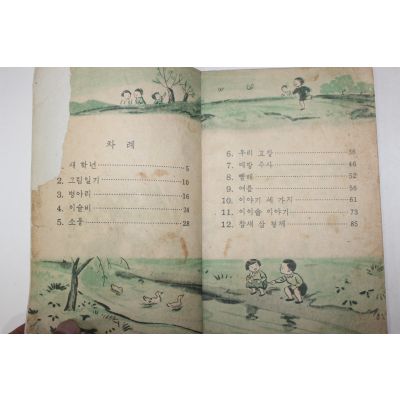 차 례
새 학년 5
2. 그림일기 10
3. 병아리 16
4. 이슬비 24
5. 소풍 28
6. 우리 고장 38
7. 예방 주사 46
8. 빨래 52
9. 여름 56
10. 이야기 세 가지 61
11. 이이솝 이야기 73
12. 참새 삼 형제 85